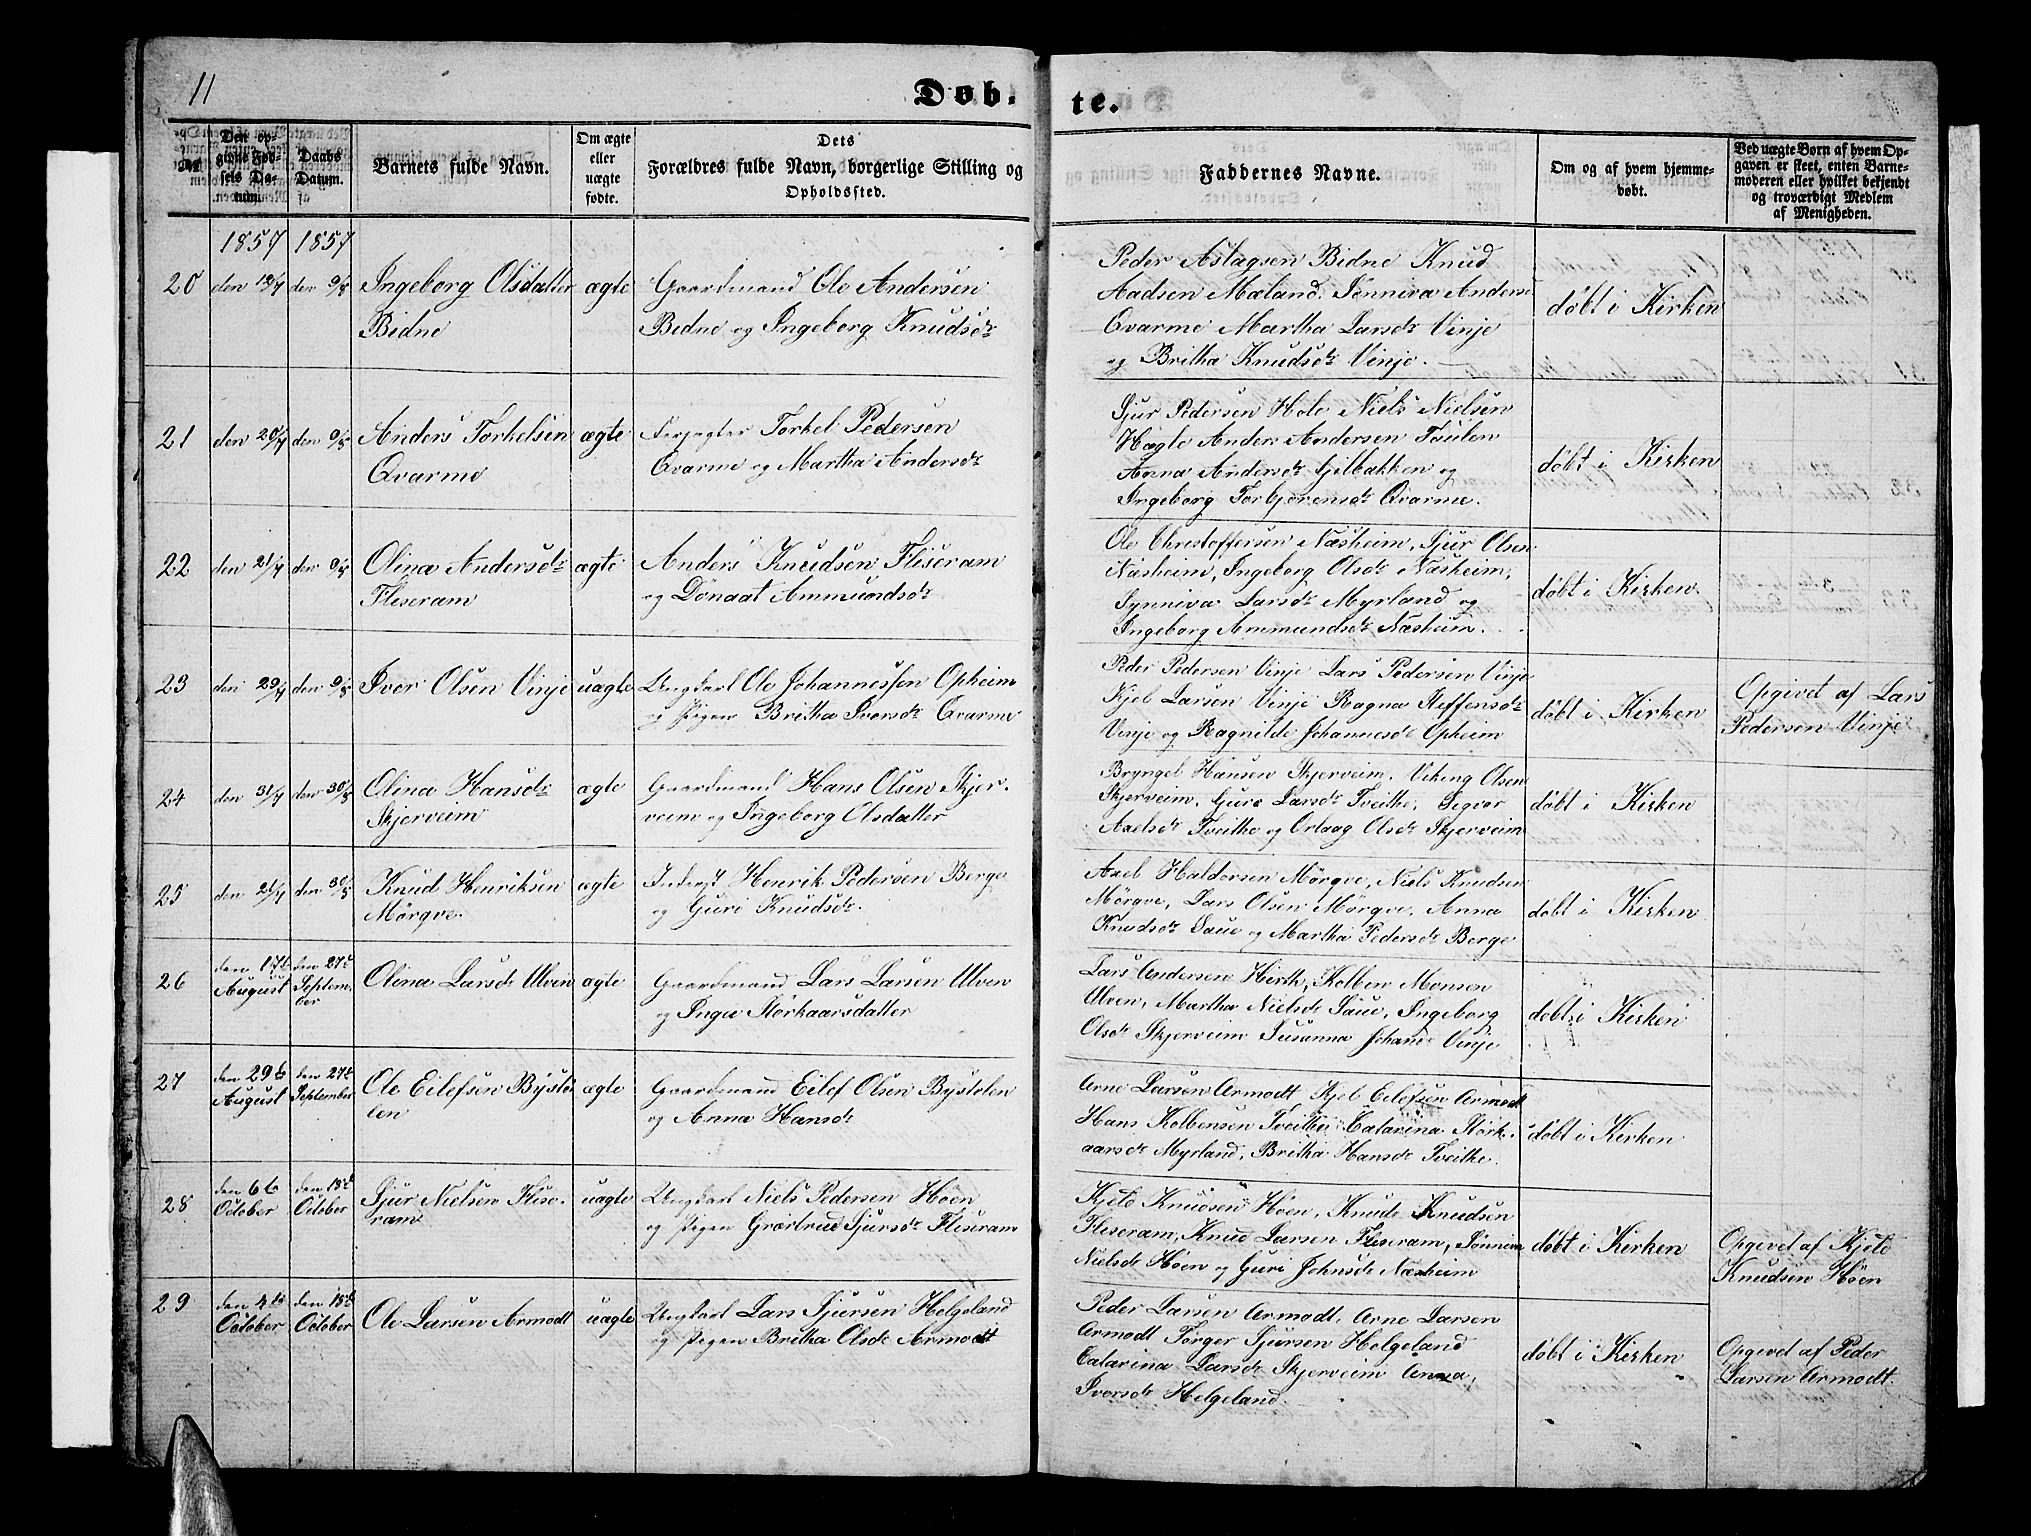 11
Døb-
te.
№
Den op-
givne Fød-
sels Da-
tum.
Daabs
Datum.
Barnets fulde Navn.
Om ægte
eller
uægte
fødte.
Dets
Forældres fulde Navn, borgerlige Stilling og
Opholdssted.
Faddernes Navne.
Om og af hvem hjemme-
døbt.
Ved uægte Børn af hvem Op-
gaven er skeet, enten Barne-
moderen eller hvilket bekjendt
og troværdigt Medlem
af Menigheden.
1857 1857
20 den 13/7 den 9/8 Ingeborg Olsdatter ægte Gaardmand Ole Andersen
Bidne
Bidne og Ingeborg Knudsdr
Peder Aslagsen Bidne Knud
Aadsen Mæland, Sønneva Anders
Qvarme Martha Larsdr Vinje
og Britha Knudsdr Vinje.
døbt i Kirken
21 den 20/7 den 9/8 Anders Torkelsen ægte Torkel Pedersen
Qvarme
Qvarme og Martha Andersdr
Sjur Pedersen Hole Niels Nielsen
Hægle Anders Andersen Taulen
Anna Andersdr Gilbakken og
Ingeborg Torbjørensdr Qvarme.
døbt i Kirken
22 den 21/7 den 9/8 Olina Andersdr ægte Anders Knudsen Fliseram
Fliseram
og Dønaat Ammundsdr
Ole Christoffersen Næsheim, Sjur Olsen
Næsheim, Ingeborg Olsdr Næsheim,
Synniva Larsdr Myrland og
Ingeborg Ammundsdr Næsheim.
døbt i Kirken.
23 den 29/7 den 9/8 Iver Olsen Vinje uægte Ungkarl Ole Johannessen Opheim
og Pigen Britha Iversdr Qvarme
Peder Pedersen Vinje Lars Pedersen Vinje
Kjel Larsen Vinje Ragna Steffensdr
Vinje og Ragnilde Johannesd Opheim
døbt i Kirken
Opgivet af Lars
Pedersen Vinje
24 den 31/7 den 30/8 Olina Hansdr ægte Gaardmand Hans Olsen Skjer-
Skjerveim
veim og Ingeborg Olsdatter
Bryngel Hansen Skjerveim, Viking Olsen
Skjerveim, Guro Larsdr Tveithe, Segvor
Axelsdr Tveithe og Ortaag Olsdr Skjerveim
døbt i Kirken
25 den 21/7 den 30/8 Knud Henriksen ægte Inderst Henrik Pedersen Berge
Mörqve.
og Guri Knudsdr.
Axel Haldorsen Mörqve, Niels Knudsen
Mörqve, Lars Olsen Mörqve, Anna
Knudsdr Saue og Martha Pedersdr Berge
døbt i Kirken
26 den 17de August den 27de Septem-
ber Olina Larsdr Ulven ægte Gaardmand Lars Larsen Ulven
og Inga Störkaarsdatter
Lars Andersen Hirth, Kolben Monsen
Ulven, Martha Nielsdr Saue, Ingeborg
Olsdr Skjerveim Susanna Johansd Vinje
døbt i Kirken
27 den 29de August den 27de September Ole Eilefsen Bystø- ægte Gaardmand Eilef Olsen Bystölen
len
og Anna Hansdr
Arne Larsen Armodt Kjel Eilefsen Armodt
Hans Kolbensen Tveithe, Catarina Störk-
aarsdr Myrland, Britha Hansdr Tveithe.
døbt i Kirken
28 den 6te October den 18de October Sjur Nielsen Flise- uægte Ungkarl Niels Pedersen Höen
ram
og Pigen Grærtrud Sjursdr Fliseram
Kjeld Knudsen Höen, Knud Knudsen
Fliseram, Knud Larsen Fliseram, Sønneva
Nielsdr Höen og Guri Johnsdr Næsheim
døbt i Kirken
Opgivet af Kjeld
Knudsen Höen
29 den 4de October den 18de October Ole Larsen Armodt uægte Ungkarl Lars Sjursen Helgeland
og Pigen Britha Olsdr Armodt
Peder Larsen Armodt, Arne Larsen
Armodt Torger Sjursen Helgeland
Catarina Larsdr Skjerveim Anna,
Iversdr Helgeland.
døbt i Kirken
Opgivet af Peder
Larsen Armodt.